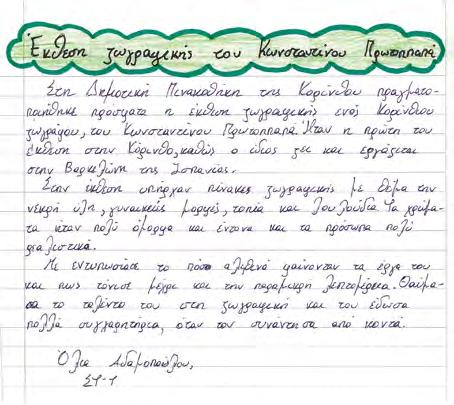 Έκθεση ζωγραφικής του Κωνσταντίνου Πρωτοπαπά
Στη Δημοτική Πινακοθήκη της Κορίνθου πραγματο-
ποιήθηκε πρόσφατα η έκθεση ζωγραφικής ενός Κορίνθιου
ζωγράφου, του Κωνσταντίνου Πρωτοπαπά. Ήταν η πρώτη του
έκθεση στην Κόρινθο, καθώς ο ίδιος ζει και εργάζεται
στην Βαρκελώνη της Ισπανίας.
Στην έκθεση υπήρχαν πίνακες ζωγραφικής με θέμα την
νεκρή ύλη, γυναικείες μορφές, τοπία και λουλούδια. Τα χρώμα-
τα ήταν πολύ όμορφα και έντονα και τα πρόσωπα πολύ
ρεαλιστικά.
Με εντυπωσίασε το πόσο αληθινά φαίνονταν τα έργα του
και πως τόνισε μέχρι και την παραμικρή λεπτομέρεια. Θαύμα-
σα το ταλέντο του στη ζωγραφική και του έδωσα
πολλά συγχαρητήρια, όταν τον συνάντησα από κοντά.
Όλια Αδαμοπούλου,
ΣΤ-1